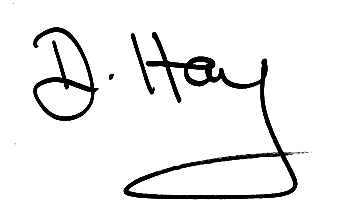 D. Hay